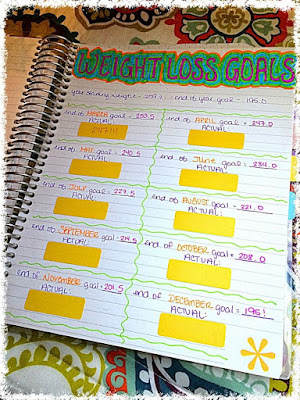 WEIGHT LOSS GOALS
starting weight = end of year goal = 195.0
end of MARCH goal = 253.5
ACTUAL:
247!!!
end of APRIL goal = 247.0
ACTUAL:
end of MAY goal = 240.5
ACTUAL:
end of June goal = 234.0
ACTUAL:
end of JULY goal = 227.5
ACTUAL:
end of AUGUST goal = 221.0
ACTUAL:
end of SEPTEMBER goal = 214.5
ACTUAL:
end of OCTOBER goal = 208.0
ACTUAL:
end of NOVEMBER goal = 201.5
ACTUAL:
end of DECEMBER goal = 195!
ACTUAL: